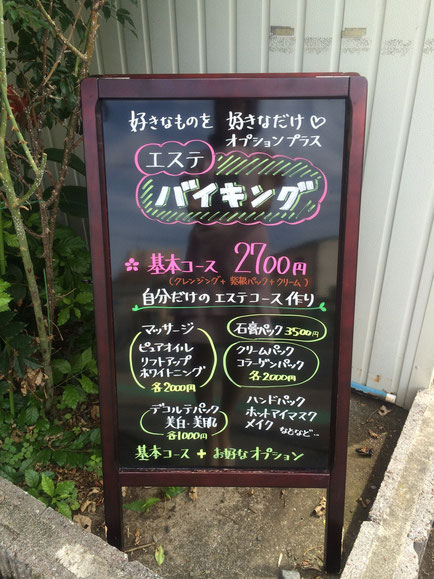 好きなものを 好きなだけ♡
オプション プラス
エステ
バイキング
基本コース 2700円
(クレンジング+ 葛根パック+クリーム)
自分だけの エステコース 作り
マッサージ
ピュアオイル
リフトアップ
ホワイトニング
各2000円
デコルテパック
美白・美肌
各1000円
石膏パック 3500円
クリームパック
コラーゲンパック
各2000円
ハンドパック
ホットアイマスク
メイク などなど…
基本コース + お好なオプション